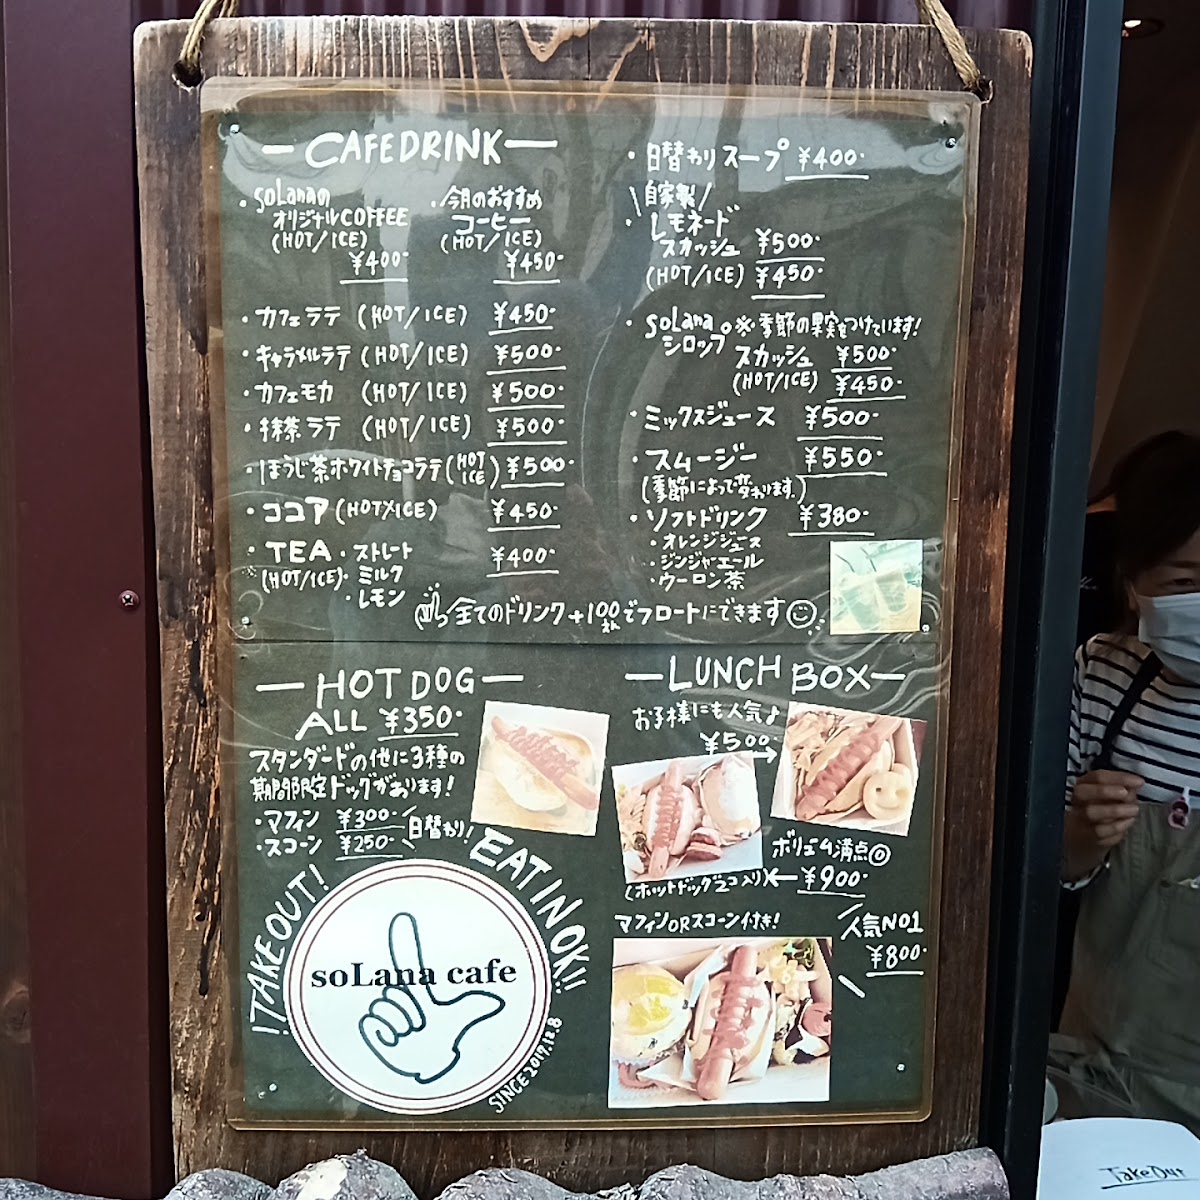 CAFE DRINK
・soLanaの
オリジナルCOFFEE
(HOT/ICE)
¥400-
・今月のおすすめ
コーヒー
(HOT/ICE)
¥450-
・カフェラテ (HOT/ICE) ¥450-
・キャラメルラテ (HOT/ICE) ¥500-
・カフェモカ (HOT/ICE) ¥500-
・抹茶ラテ (HOT/ICE) ¥500-
・ほうじ茶ホワイトチョコラテ (HOT/ICE) ¥500-
・ココア (HOT/ICE) ¥450-
・TEA
(HOT/ICE)
・ストレート
・ミルク
・レモン
¥400-
・日替わりスープ ¥400-
\自家製/
・レモネード
スカッシュ ¥500-
(HOT/ICE) ¥450-
・soLana。※季節の果実をつけています!
シロップ
スカッシュ ¥500-
(HOT/ICE) ¥450-
・ミックスジュース ¥500-
・スムージー ¥550-
(季節によって変わります。)
・ソフトドリンク ¥380-
・オレンジジュース
・ジンジャーエール
・ウーロン茶
全てのドリンク+100えんでフロートにできます
HOT DOG
ALL ¥350-
スタンダードの他に3種の
期間限定ドッグがあります!
・マフィン ¥300-
・スコーン ¥250-
日替わり!
!TAKEOUT!
EAT IN OK!!
soLana cafe
SINCE 2017.12.8
LUNCH BOX
お子様にも人気♪
¥500-→
ボリューム満点◎
(ホットドッグ2コ入り)←¥900-
マフィンORスコーン付き!
人気NO1
¥800-
TakeOut